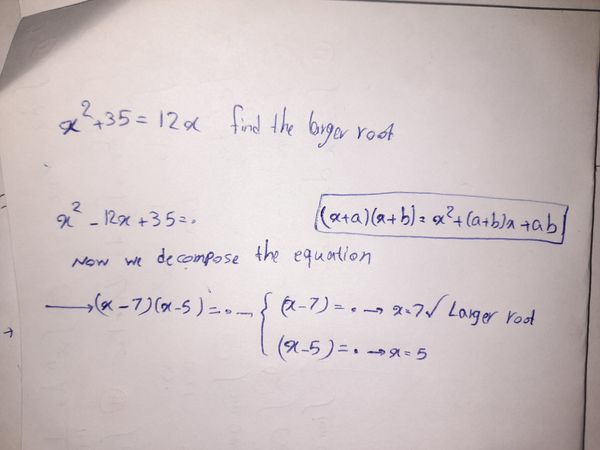 x²+35=12x find the larger root
x²-12x+35=.
(x+a)(x+b)=x²+(a+b)x+ab
Now we decompose the equation
→(x-7)(x-5)=.→{ (x-7)=.→x=7✓ Larger root
(x-5)=.→x=5